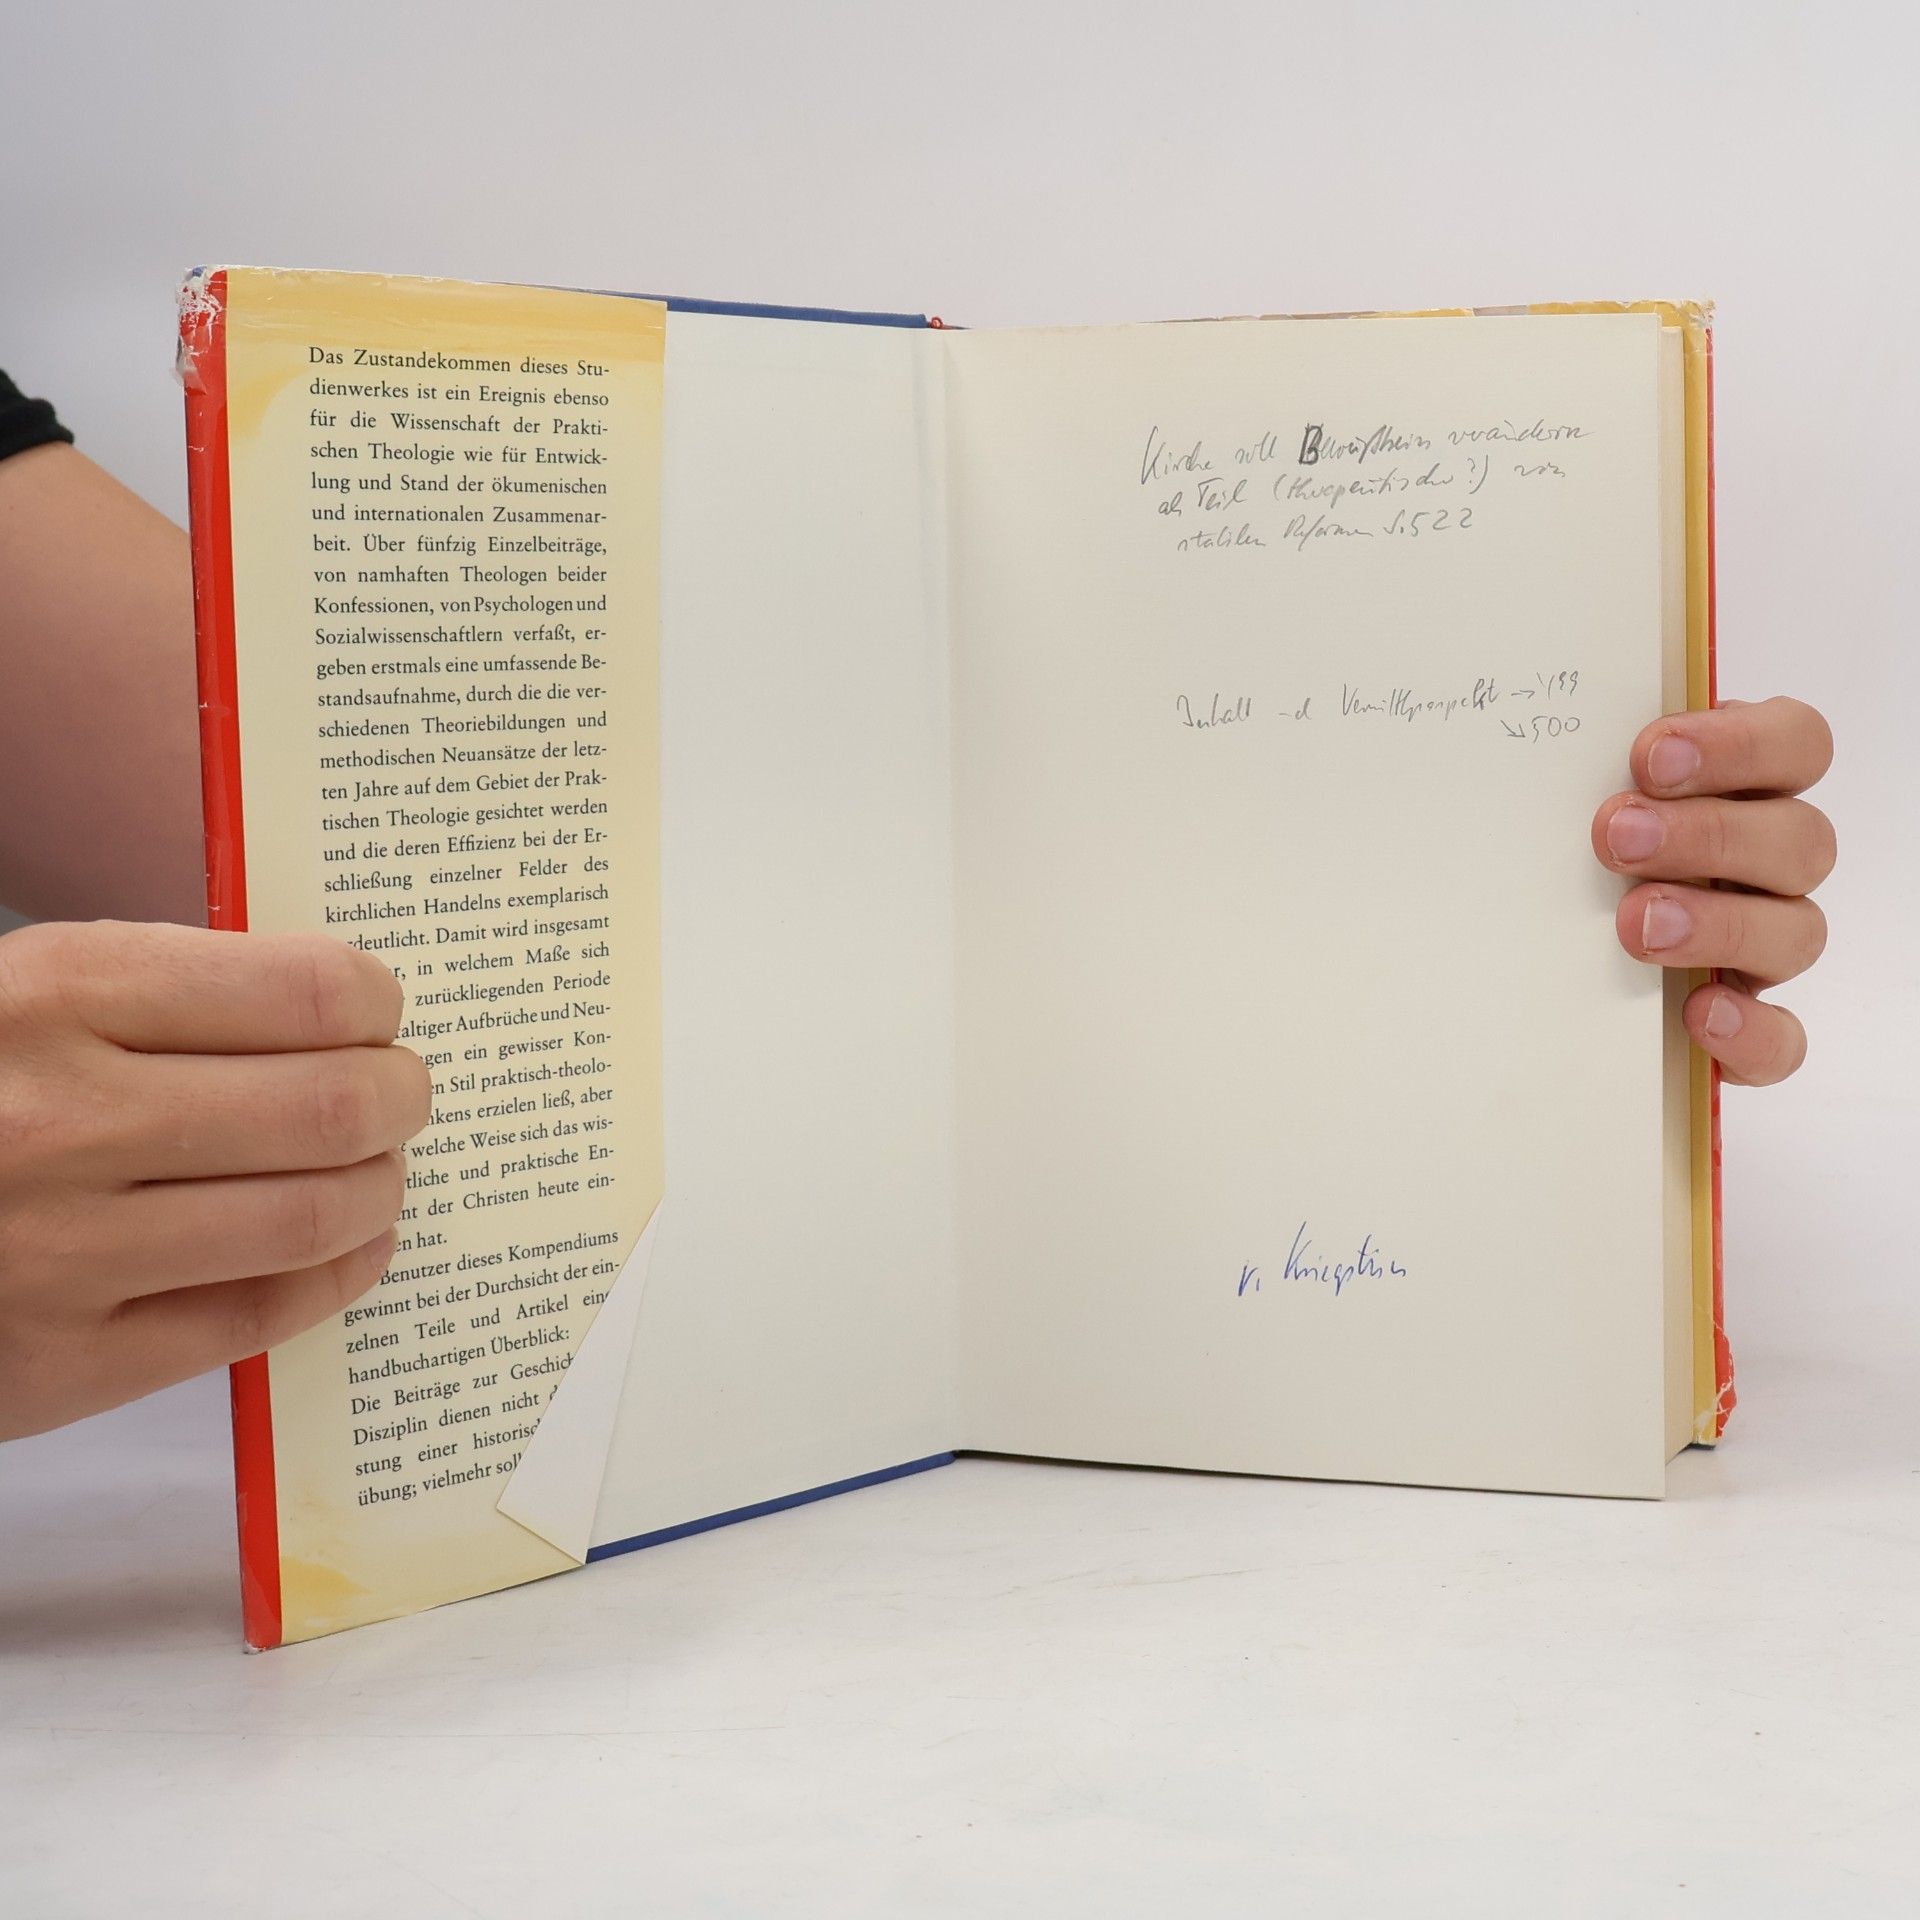 Das Zustandekommen dieses Stu-
dienwerkes ist ein Ereignis ebenso
für die Wissenschaft der Prakti-
schen Theologie wie für Entwick-
lung und Stand der ökumenischen
und internationalen Zusammenar-
beit. Über fünfzig Einzelbeiträge,
von namhaften Theologen beider
Konfessionen, von Psychologen und
Sozialwissenschaftlern verfaßt, er-
geben erstmals eine umfassende Be-
standsaufnahme, durch die die ver-
schiedenen Theoriebildungen und
methodischen Neuansätze der letz-
ten Jahre auf dem Gebiet der Prak-
tischen Theologie gesichtet werden
und die deren Effizienz bei der Er-
schließung einzelner Felder des
kirchlichen Handelns exemplarisch
deutlicht. Damit wird insgesamt
r, in welchem Maße sich
zurückliegenden Periode
faltiger Aufbrüche und Neu-
gen ein gewisser Kon-
en Stil praktisch-theolo-
nkens erzielen ließ, aber
welche Weise sich das wis-
tliche und praktische En-
nt der Christen heute ein-
en hat.
Benutzer dieses Kompendiums
gewinnt bei der Durchsicht der ein-
zelnen Teile und Artikel eine
handbuchartigen Überblick:
Die Beiträge zur Geschich
Disziplin dienen nicht d
stung einer historisc
übung; vielmehr soll
Kirche soll Bewußtsein verändern
als Teil (therapeutischer?) von
Reformen S. 522
Inhalt und → 499
↘ 500
v.